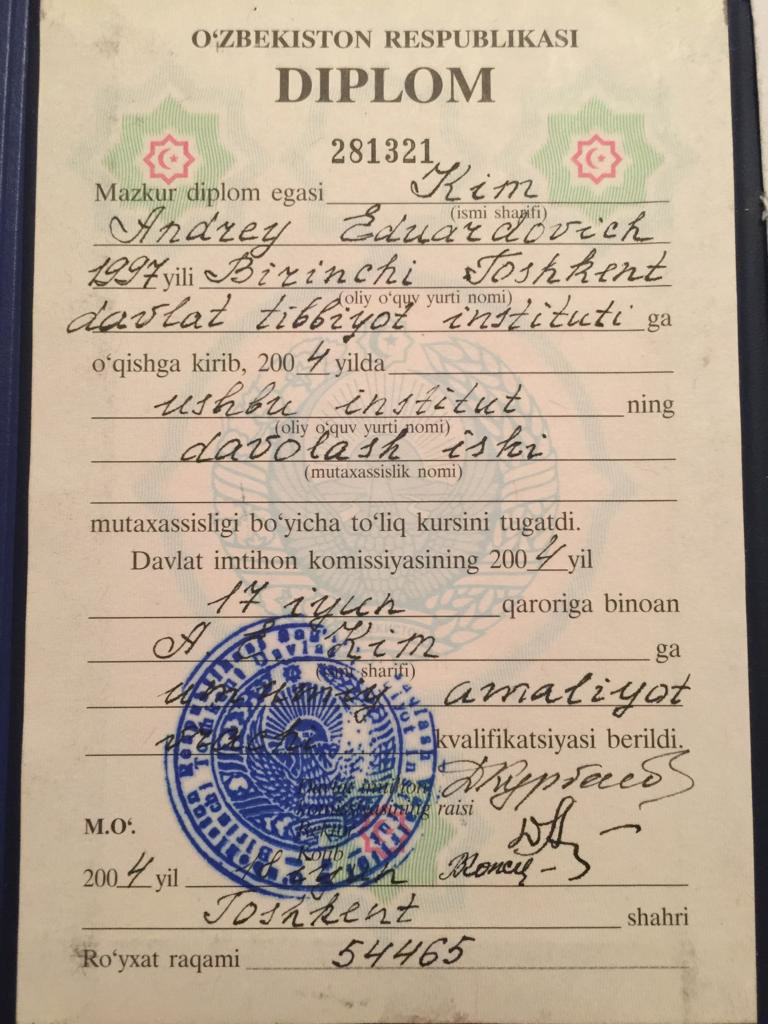 O‘ZBEKISTON RESPUBLIKASI
DIPLOM
281321
Mazkur diplom egasi Kim
(ismi sharifi)
Andrey Eduardovich
1997 yili Birinchi Toshkent
(oliy o‘quv yurti nomi)
davlat tibbiyot instituti ga
o‘qishga kirib, 2004 yilda
ushbu institut ning
(oliy o‘quv yurti nomi)
davolash ishi
(mutaxassislik nomi)
mutaxassisligi bo‘yicha to‘liq kursini tugatdi.
Davlat imtihon komissiyasining 2004 yil
17 iyun qaroriga binoan
A E Kim ga
(ismi sharifi)
umumiy amaliyot
vrachi kvalifikatsiyasi berildi.
Davlat imtihon
komissiyasining raisi
Rektor
M.O‘.
Kotib
2004 yil 18 iyun
Toshkent shahri
Ro‘yxat raqami 54465